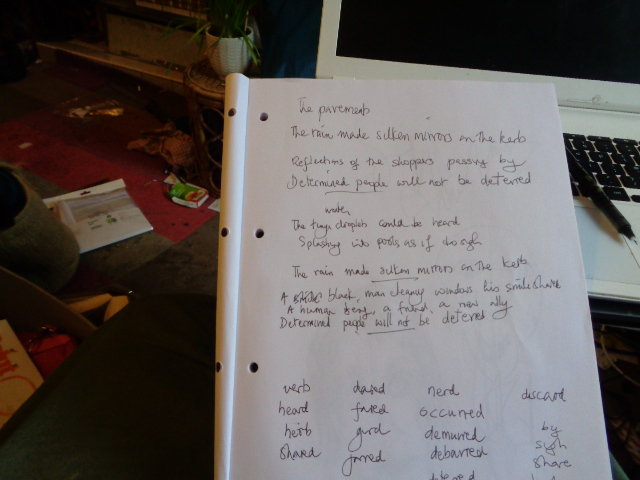 The pavement
The rain made silken mirrors on the kerb
Reflections of the shoppers passing by
Determined people will not be deterred
water
The tiny droplets could be heard
Splashing into pools as if
The rain made silken mirrors on the kerb
A black man cleans windows his smile share
A human being, a friend, a new ally
Determined people will not be deterred
verb dared nerd discard
heard fared occurred
herb gird demurred by
shared jarred debarred sigh
share